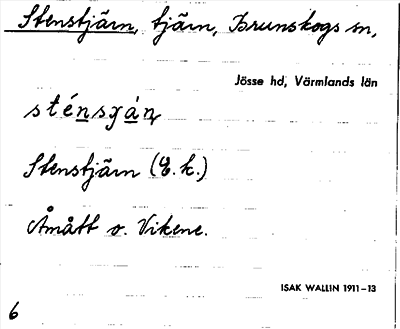 Stenstjärn, tjärn, Brunskogs sn,
Jösse hd, Värmlands län
sténsɣá̠n̥
Stenstjärn (E. k.)
Åmått o. Vikene.
ISAK WALLIN 1911–13
6